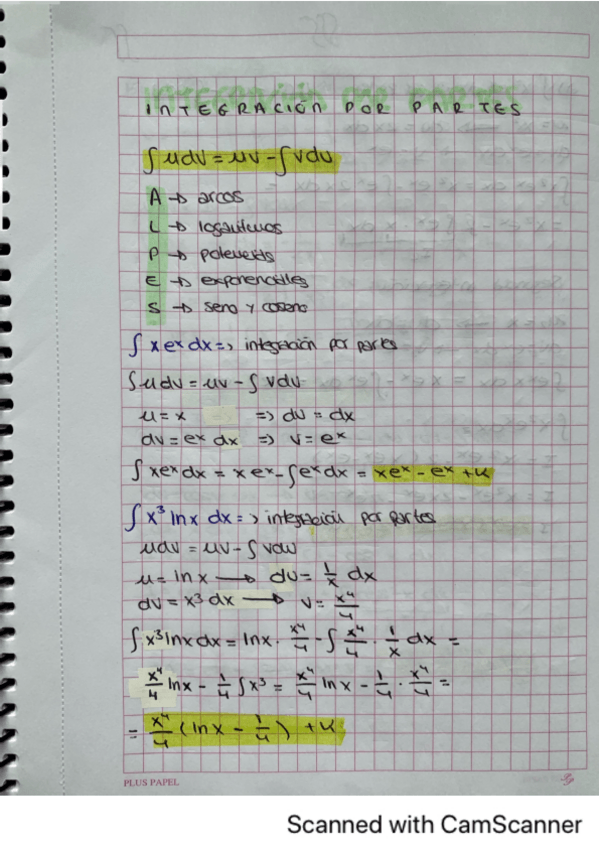 INTEGRACIÓN POR PARTES
∫udv = uv - ∫vdu
A → arcos
L → logaritmos
P → polinomios
E → exponenciales
S → seno y coseno
∫ x eˣ dx => integración por partes
∫udv = uv - ∫vdu
u = x => du = dx
dv = eˣ dx => v = eˣ
∫ xeˣ dx = x eˣ - ∫eˣ dx = xeˣ - eˣ + K
∫ x³ ln x dx => integración por partes
udv = uv - ∫vdu
u = ln x → du = 1/x dx
dv = x³ dx → v = x⁴/4
∫ x³ lnx dx = lnx · x⁴/4 - ∫ x⁴/4 · 1/x dx =
x⁴/4 lnx - 1/4 ∫x³ = x⁴/4 ln x - 1/4 · x⁴/4 =
= x⁴/4 (ln x - 1/4) + K
PLUS PAPEL
Scanned with CamScanner